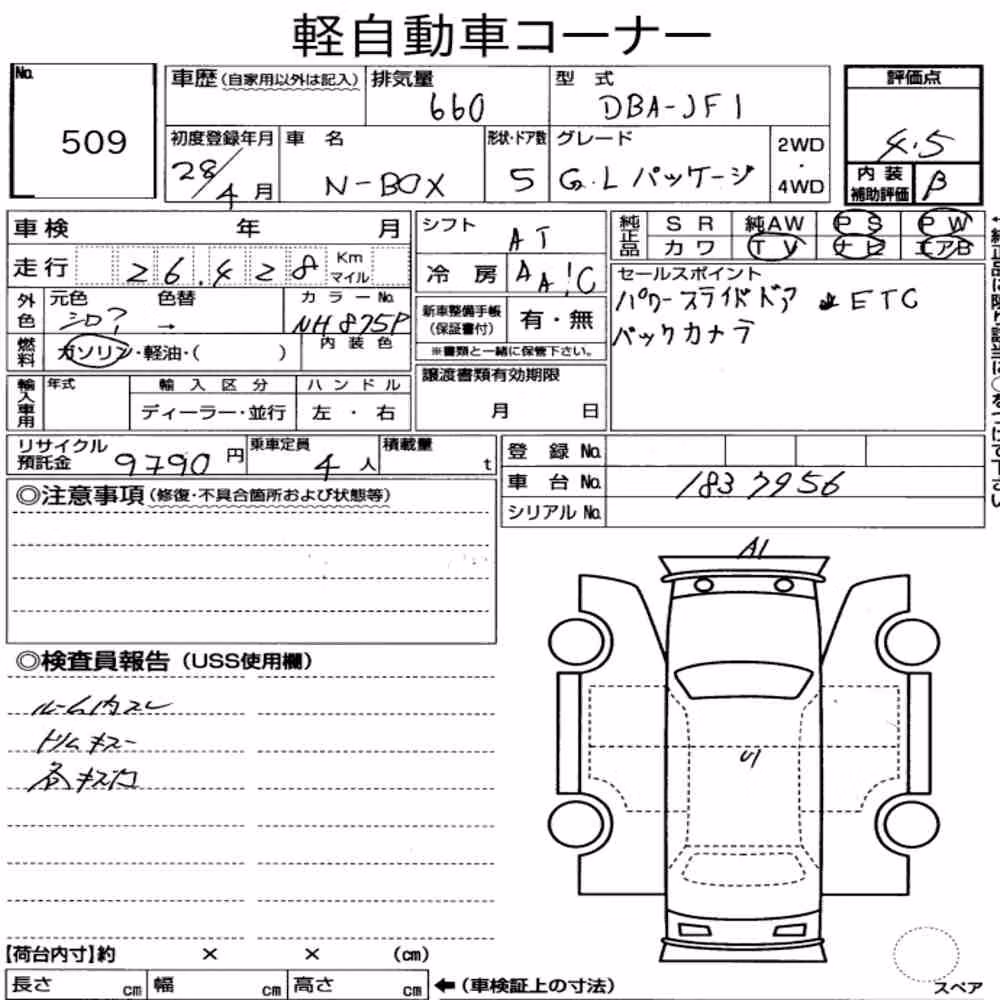 軽自動車コーナー
No. 509
車歴(自家用以外は記入) 排気量 660 型式 DBA-JF1 評価点 4.5
初度登録年月 28/4月 車名 N-BOX 形状・ドア数 5 グレード G.Lパッケージ 2WD・4WD
内装補助評価 B
車検 年 月 シフト AT 純正品 SR 純AW PS PW
カワ TV ナビ エアB
走行 26.428 Km マイル 冷房 AA!C
セールスポイント
パワースライドドア ETC
バックカメラ
外色 元色 シロ? 色替 → カラーNo. NH875P
新車整備手帳(保証書付) 有・無
※書類と一緒に保管下さい。
燃料 ガソリン・軽油・( ) 内装色
輸入車用 年式 輸入区分 ハンドル
ディーラー・並行 左・右
譲渡書類有効期限
月 日
リサイクル預託金 9790円 乗車定員 4人 積載量 t
登録No.
車台No. 1837956
シリアルNo.
◎注意事項(修復・不具合箇所および状態等)
◎検査員報告(USS使用欄)
ルーム内スレ
ドリムキズ
各キズ凹
A1
U1
【荷台内寸】約 × × (cm)
長さ cm 幅 cm 高さ cm ←(車検証上の寸法)
スペア